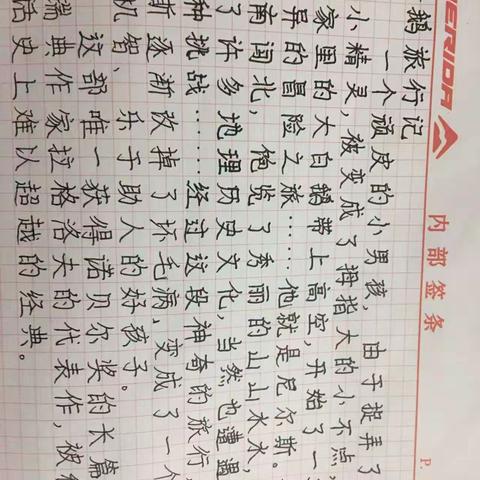 ERIDA
内部签条
P.
鹅旅行记
一个顽皮的小男孩，由于捉弄了
小精灵，被变成了拇指大的小不点，
家里的大白鹅带上高空，开始了一
异的冒险之旅……他就是尼尔斯。
南闯北，饱览了秀丽的山山水水，
了许多地理历史文化，当然也遭遇
种挑战……经过这段神奇的旅行，
斯逐渐改掉了坏毛病，变成了一个
机智、乐于助人的好孩子。
这部唯一获得诺贝尔奖的长篇
瑞典作家拉格洛夫的代表作，被
话史上难以超越的经典。